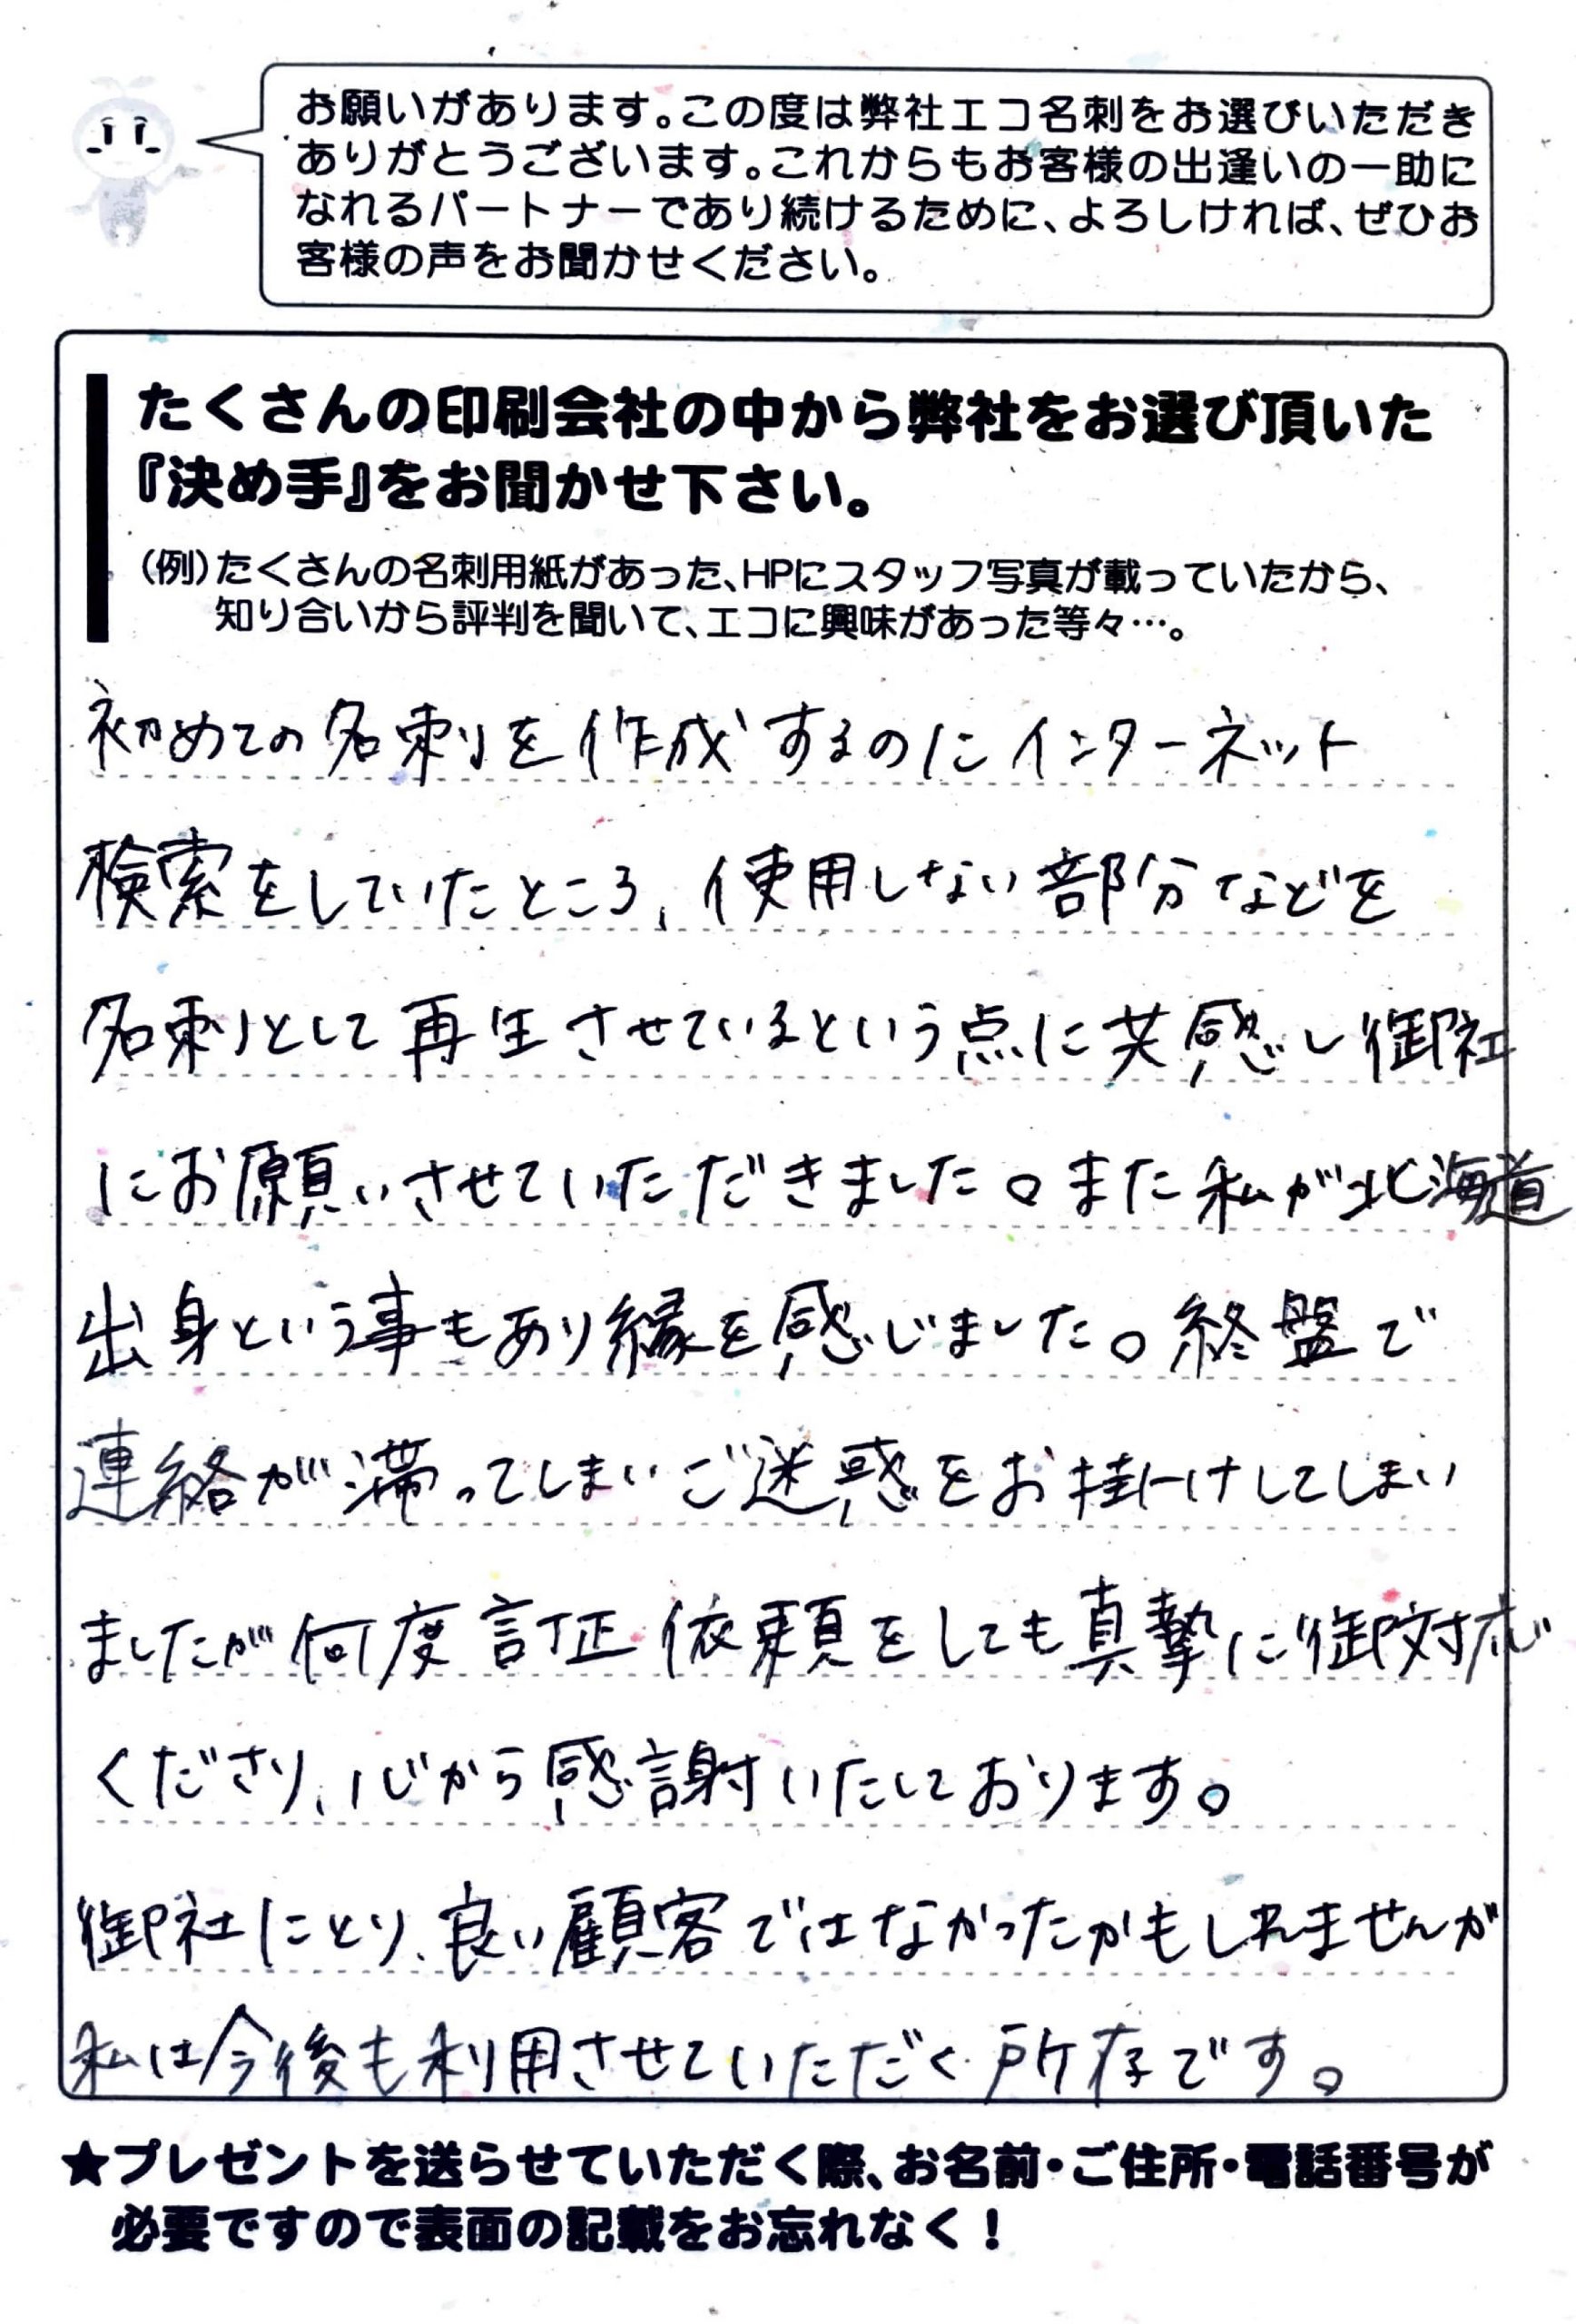 お願いがあります。この度は弊社エコ名刺をお選びいただき
ありがとうございます。これからもお客様の出逢いの一助に
なれるパートナーであり続けるために、よろしければ、ぜひお
客様の声をお聞かせください。
たくさんの印刷会社の中から弊社をお選び頂いた
『決め手』をお聞かせ下さい。
（例）たくさんの名刺用紙があった、HPにスタッフ写真が載っていたから、
知り合いから評判を聞いて、エコに興味があった等々…。
初めての名刺を作成するのにインターネット
検索をしていたところ、使用しない部分などを
名刺として再生させているという点に共感し御社
にお願いさせていただきました。また私が北海道
出身という事もあり縁を感じました。終盤で
連絡が滞ってしまいご迷惑をお掛けしてしまい
ましたが何度訂正依頼をしても真摯に御対応
くださり、心から感謝いたしております。
御社にとり、良い顧客ではなかったかもしれませんが
私は今後も利用させていただく所存です。
★プレゼントを送らせていただく際、お名前・ご住所・電話番号が
必要ですので表面の記載をお忘れなく！